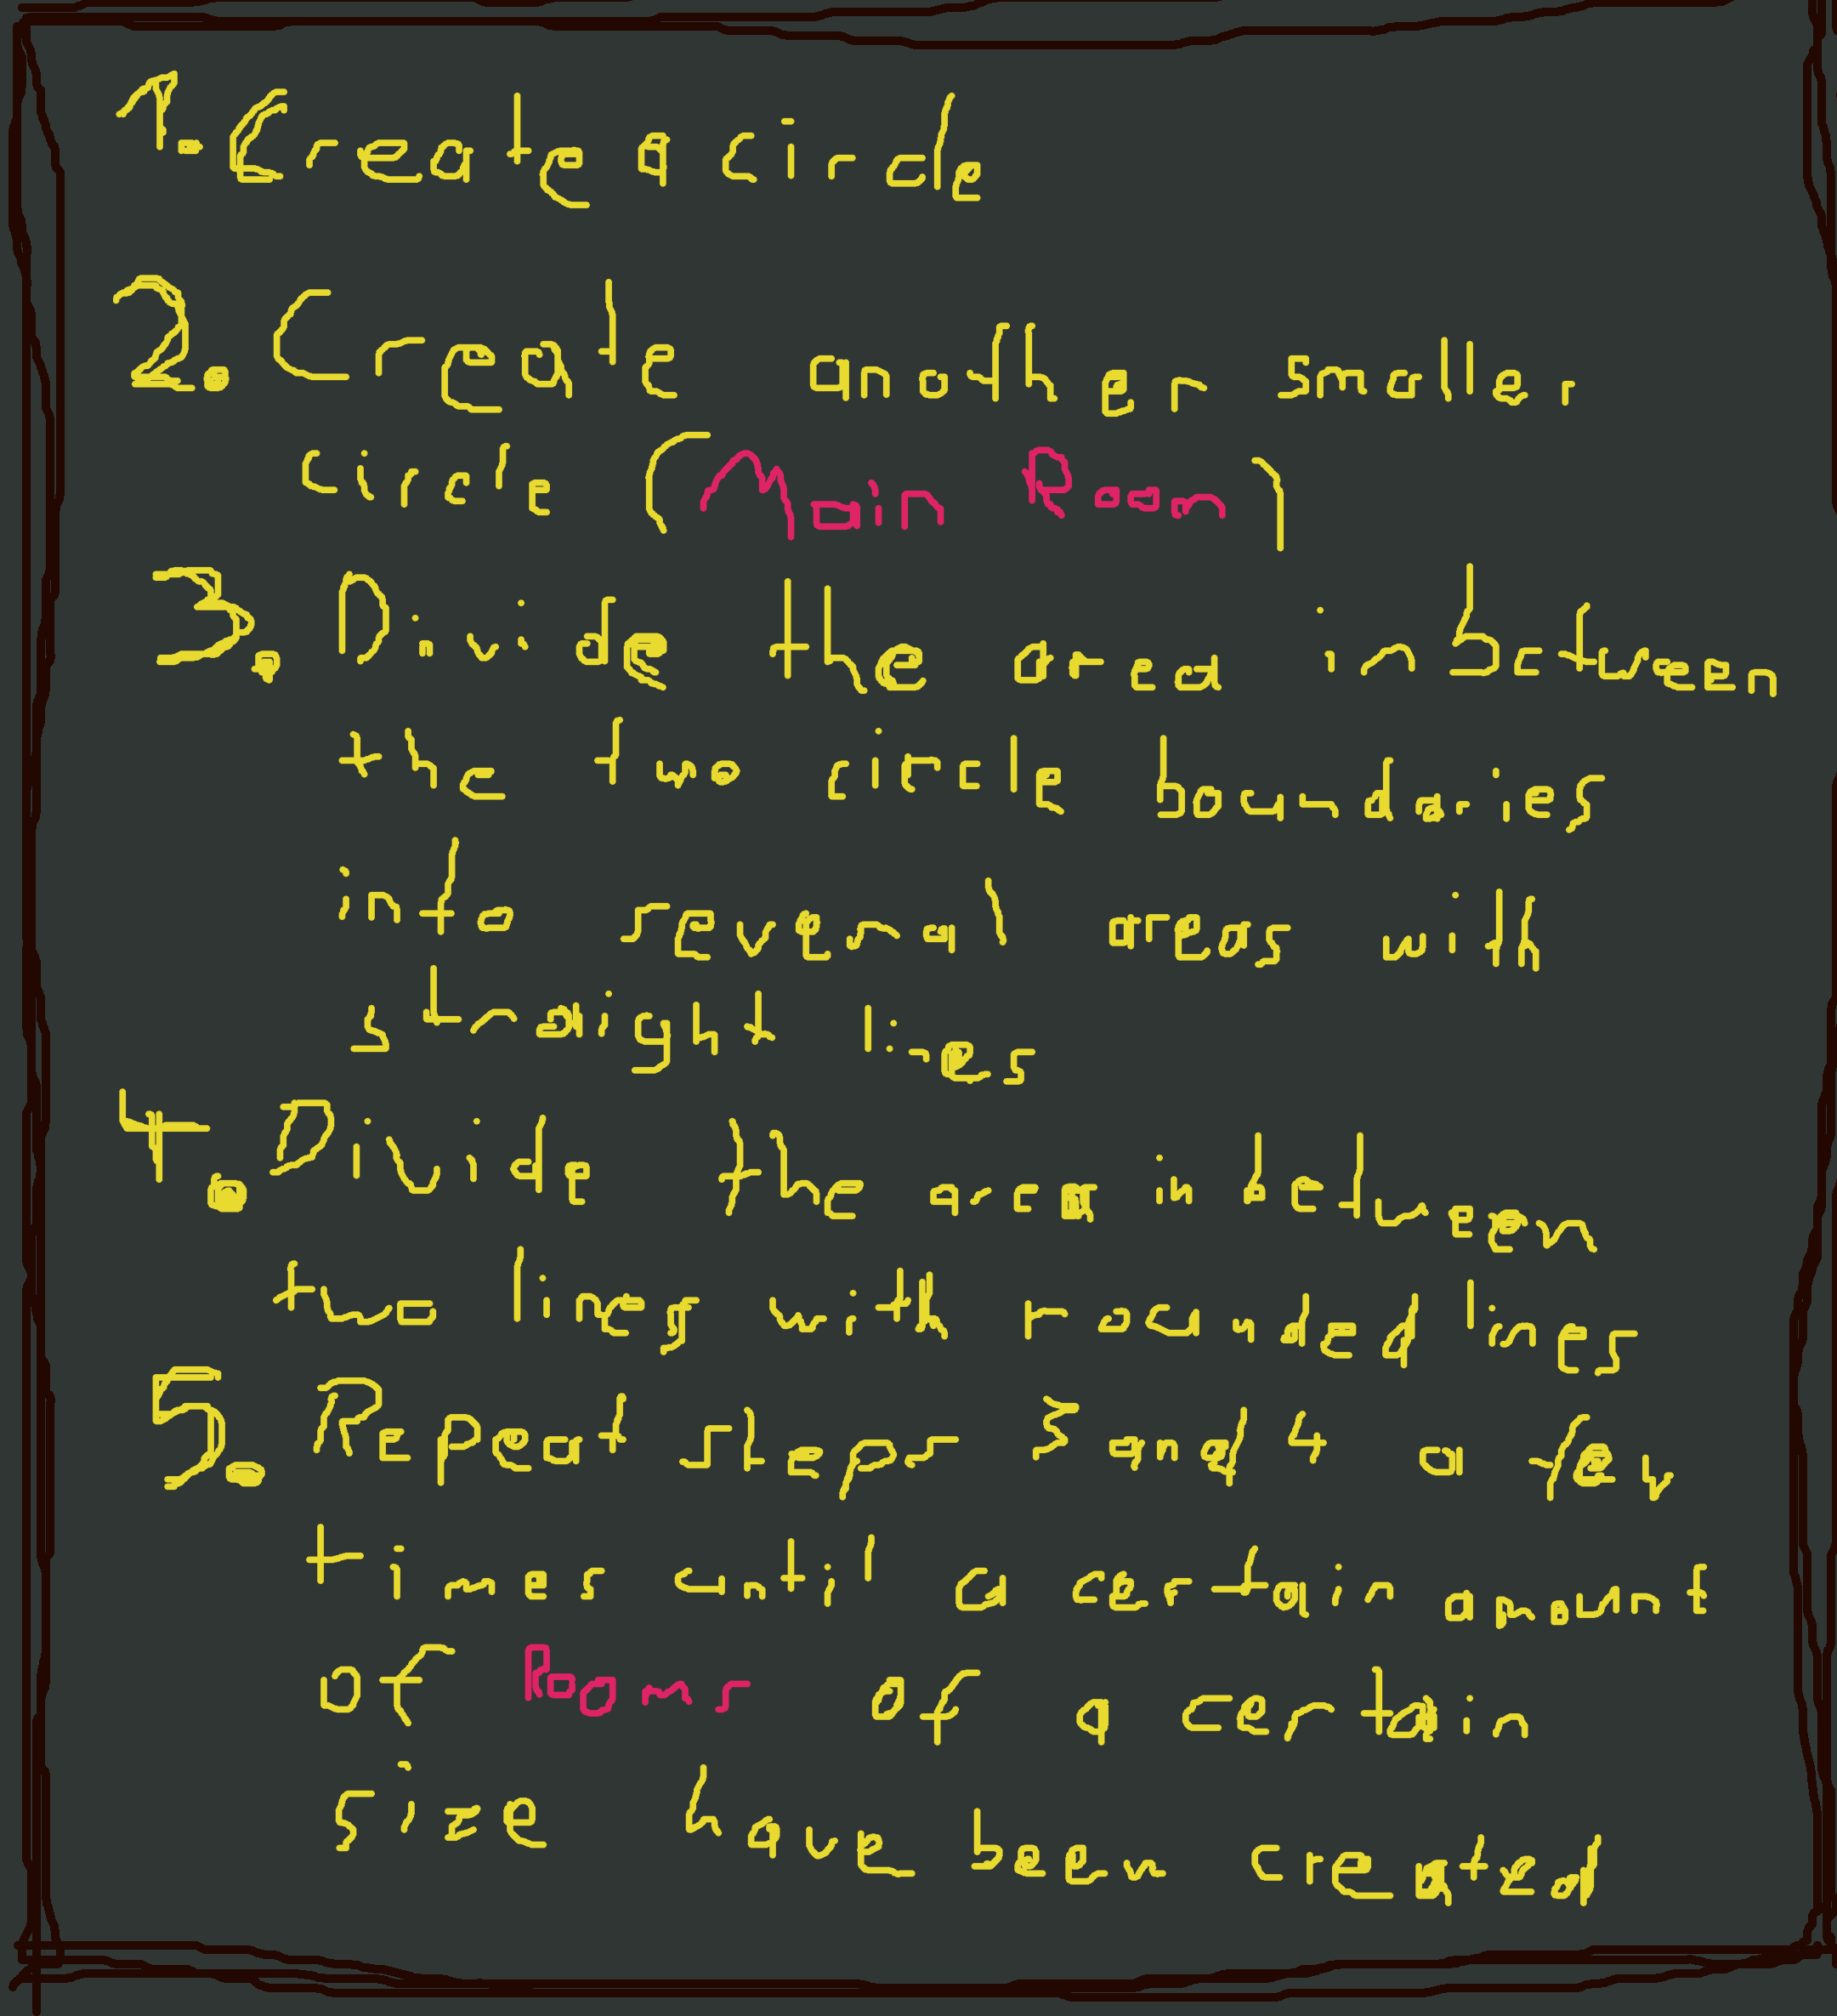 1. Create a circle
2. Create another smaller
circle (Main Room)
3. Divide the area in between
the two circle boundaries
into several areas with
straight lines
4. Divide the area in between
two lines with rounded lines
5. Repeat steps 3 and 4 a few
times until a certain amount
of Rooms of a certain
size have been created